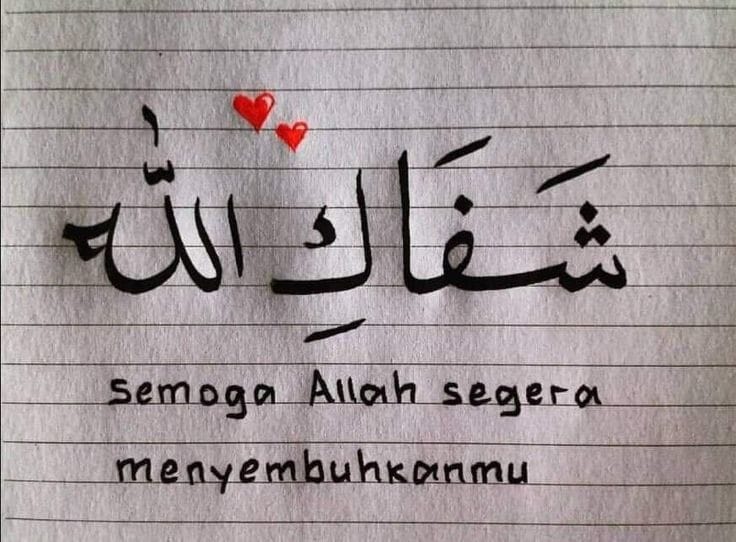 شَفَاكِ اللّٰه
semoga Allah segera
menyembuhkanmu